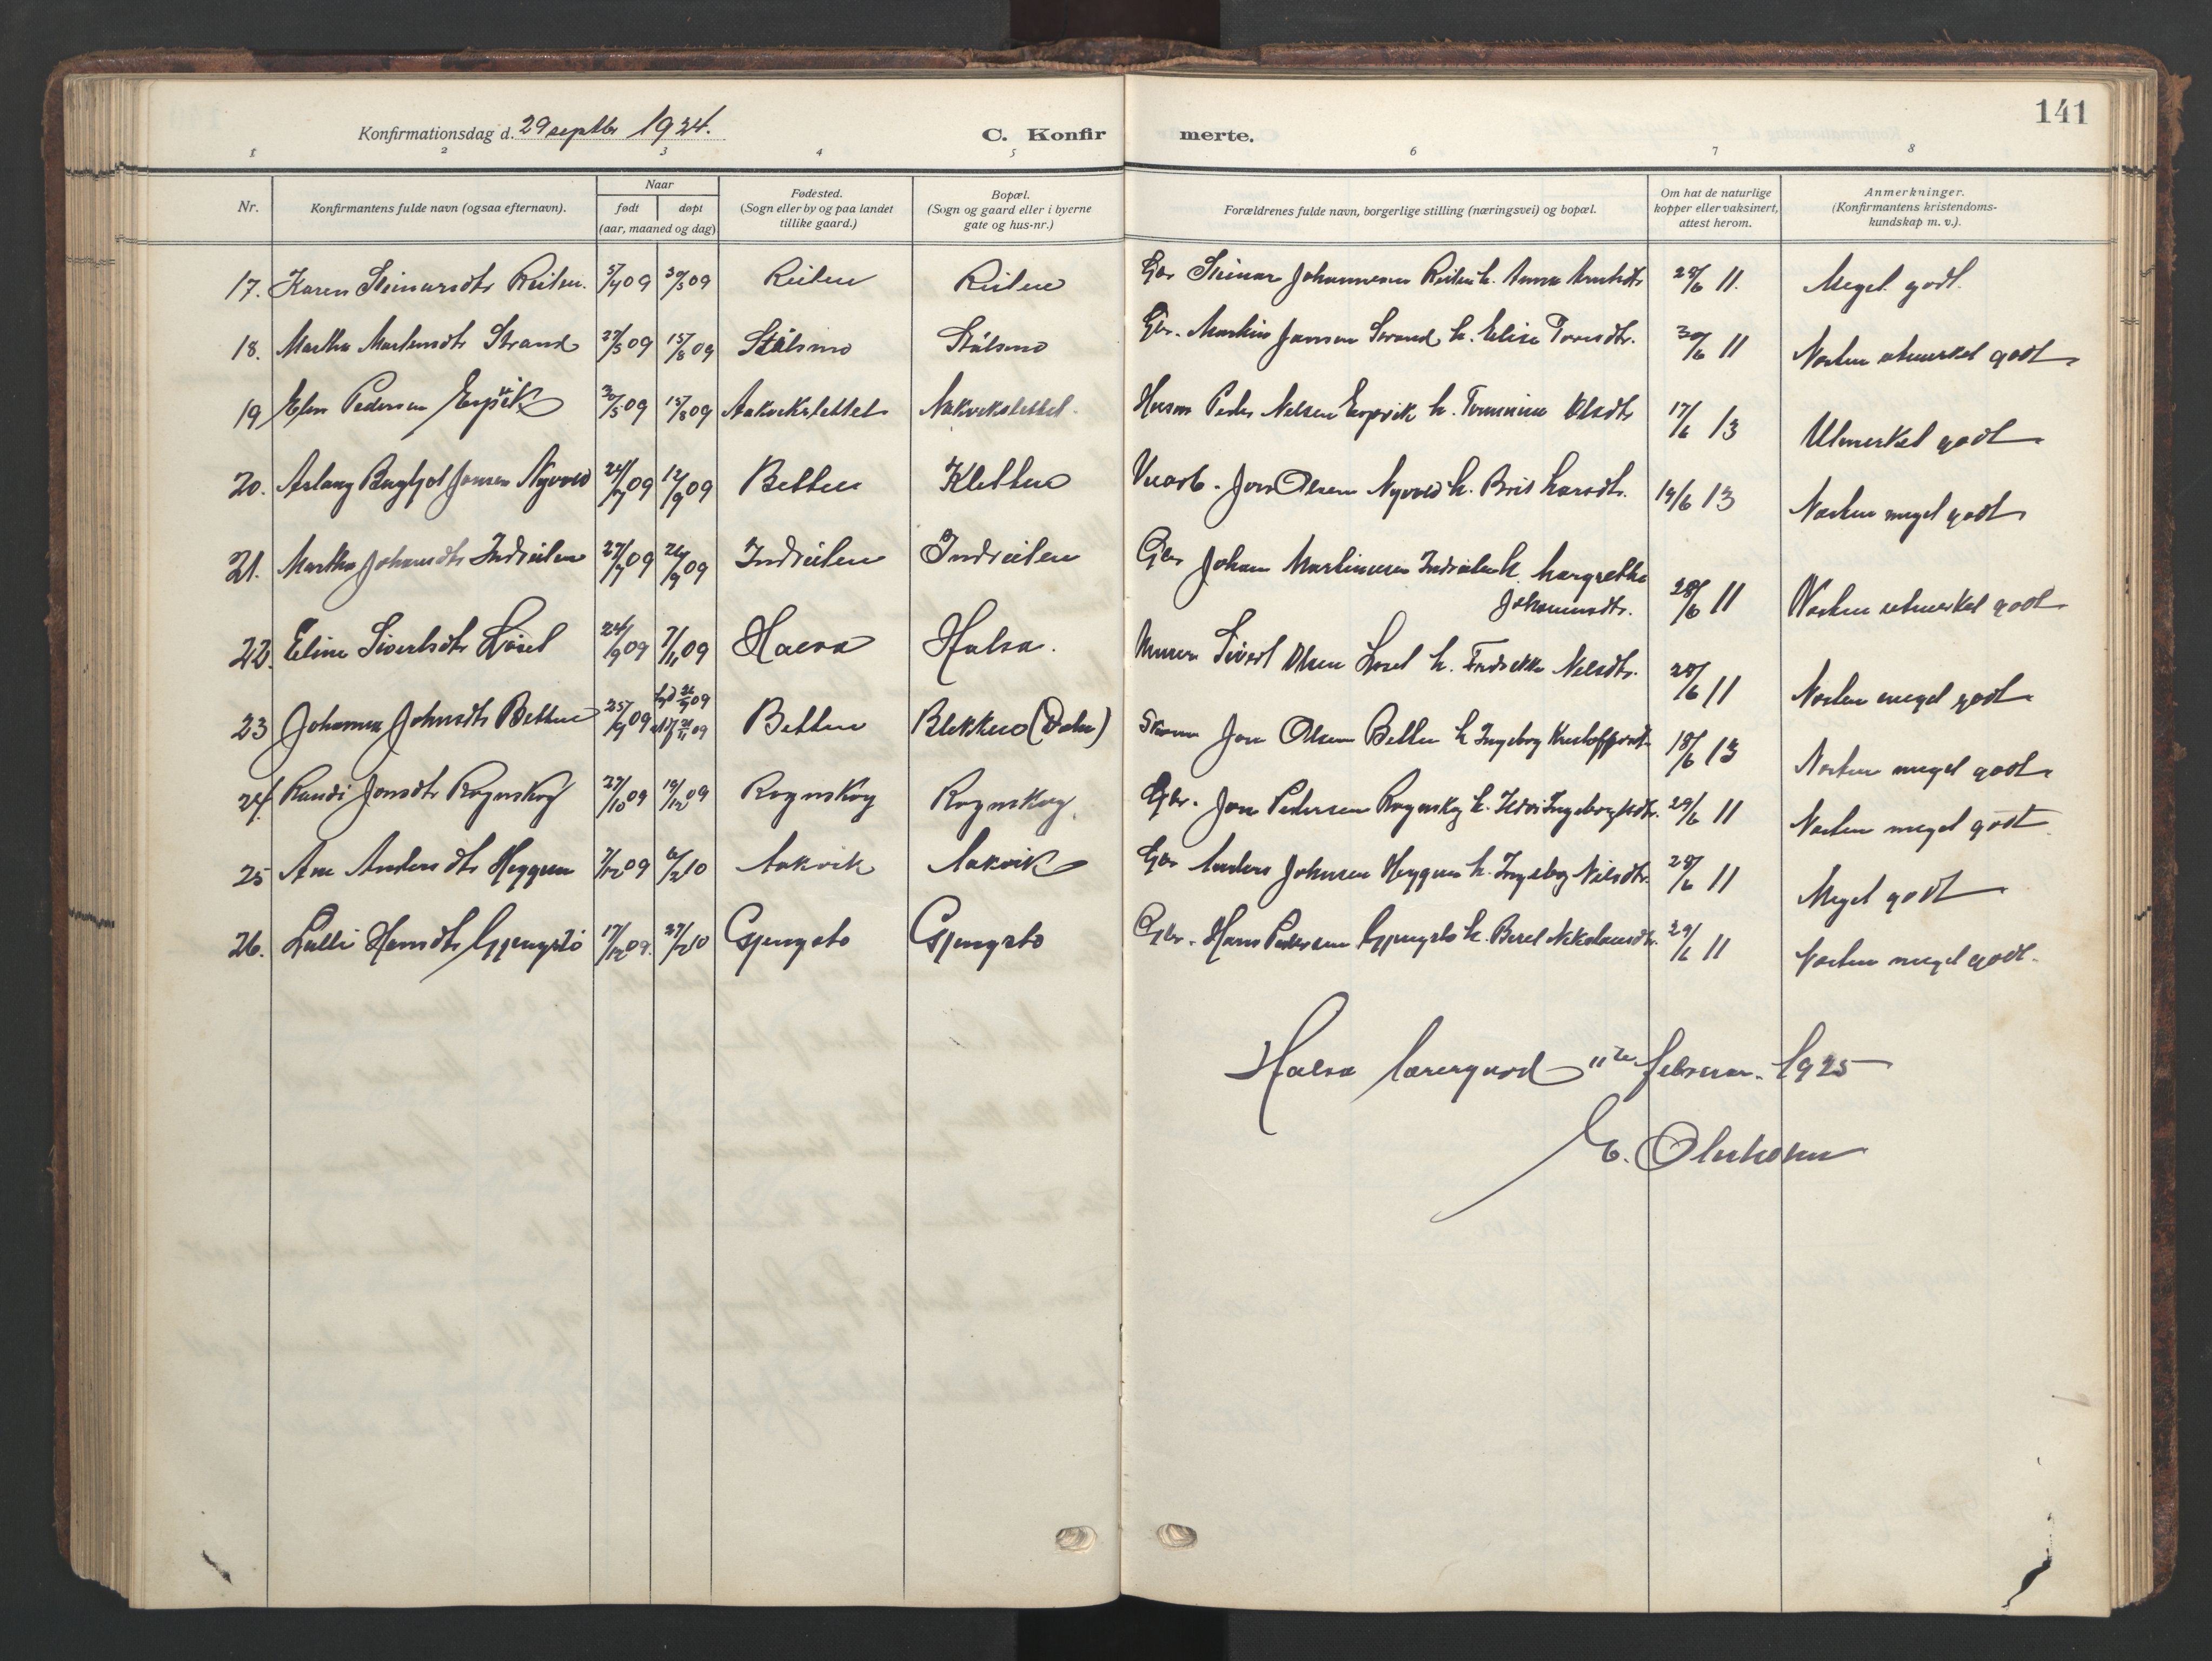 141
Konfirmationsdag d. 29 septbr 1924. C. Konfirmerte.
1 2 3 4 5 6 7 8
Nr.
Konfirmantens fulde navn (ogsaa efternavn).
Naar
født døpt
(aar, maaned og dag)
Fødested.
(Sogn eller by og paa landet
tillike gaard.)
Bopæl.
(Sogn og gaard eller i byerne
gate og hus-nr.)
Forældrenes fulde navn, borgerlige stilling (næringsvei) og bopæl.
Om hat de naturlige
kopper eller vaksinert,
attest herom.
Anmerkninger.
(Konfirmantens kristendoms-
kundskap m. v.).
17. Karen Steinarsdtr Reiten. 5/4 09 30/5 09 Reiten Reiten Gbr Steinar Johannesen Reiten h. Anna 28/6 11. Meget godt.
18. Martha Martinsdtr Strand 23/5 09 15/8 09 Stålsmo Stålsmo Gbr. Martin Jansen Strand h. Elise 30/6 11 Næsten utmerket godt
19 Elen Pedersen Erpvik 30/5 09 15/8 09 Aakvikslettet Aakvikslettet. Husm Peder Nelsen Erpvik h. 17/6 13 Utmerket godt
20. Aslaug Bergljot Jonsen Nyvold 24/7 09 12/9 09 Betten Kletten Jon Olsen Nyvold h. Brit Larsdtr. 19/6 13 Næsten meget godt
21. Martha Johansdtr Indreiten 27/7 09 26/9 09 Indreiten Indreiten Gbr Johan Martinusen Indreiten h. Margrethe
Johannsdtr. 28/6 11 Næsten utmerket godt
22. Eline Sivertsdtr Løset 24/9 09 7/11 09 Halsa Halsa. Murer Sivert Olsen Løset h. Fredrikke Nelsdtr. 28/6 11 Næsten meget godt
23 Johanna Johnsdtr Betten 25/9 09 Betten Blekken (Dalen) Jon Olsen Betten h Ingeborg 18/6 13 Næsten meget godt
24. Randi Jonsdtr Rognskog 27/10 09 19/12 09 Rognskog Rognskog. Gbr. Jon Pedersen Rognskog h. 29/6 11 Næsten meget godt
25 Ane Andersdtr Heggem 7/12 09 6/2 10 Aakvik Aakvik Gbr Anders Johnsen Heggem h. Ingeborg Nilsdtr. 28/6 11 Meget godt
26. Lalli Hansdtr Gjengstø 17/12 09. 27/2 10 Gjengstø Gjengstø Gbr. Hans Pedersen Gjengstø h. Beret Nikolausdtr. 29/6 11 Næsten meget godt.
Halsa 11te februar. 1925
E.